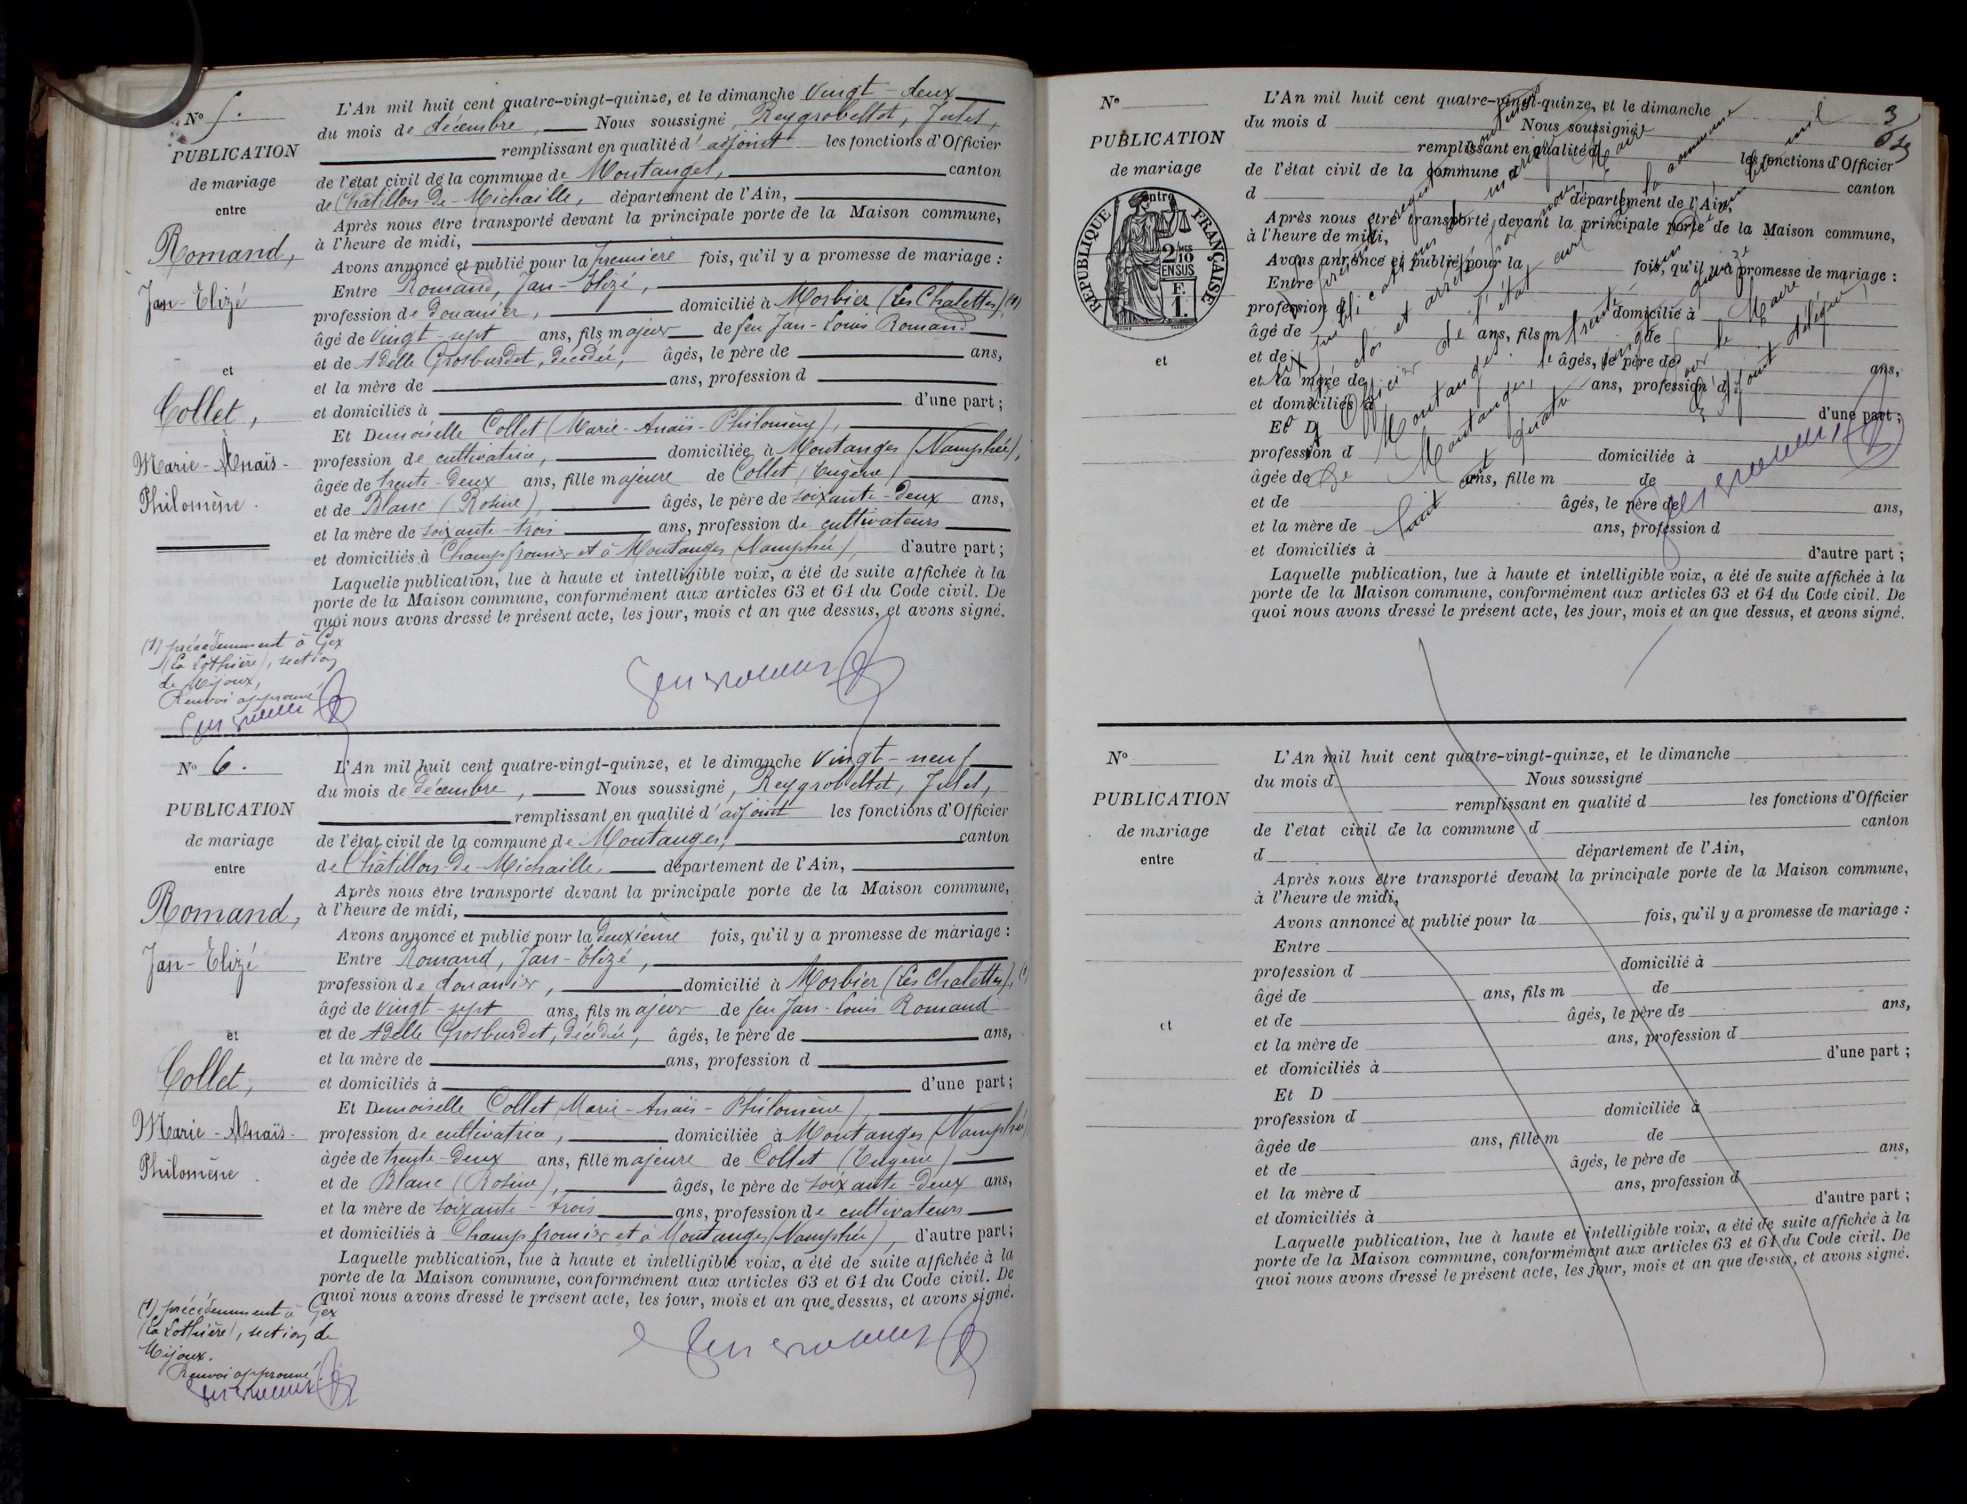 N° 5.
PUBLICATION
de mariage
entre
Romand,
Jan-Elizé
et
Collet,
Marie-Anaïs-
Philomène.
L'An mil huit cent quatre-vingt-quinze, et le dimanche vingt-deux
du mois de décembre, Nous soussigné, Reygrobellet, Jules,
remplissant en qualité d'adjoint les fonctions d'Officier
de l'état civil de la commune de Montanges, canton
de Châtillon-de-Michaille, département de l'Ain,
Après nous être transporté devant la principale porte de la Maison commune,
à l'heure de midi,
Avons annoncé et publié pour la première fois, qu'il y a promesse de mariage :
Entre Romand, Jan-Elizé,
profession de douanier, domicilié à Morbier (Les Chalettes), (1)
âgé de vingt-sept ans, fils majeur de feu Jan-Louis Romand
et de Adelle Grosburdet, décédée, âgés, le père de ans,
et la mère de ans, profession d
et domiciliés à d'une part ;
Et Demoiselle Collet (Marie-Anaïs-Philomène),
profession de cultivatrice, domiciliée à Montanges (Namphée),
âgée de trente-deux ans, fille majeure de Collet (Eugène)
et de Blanc (Rosine), âgés, le père de soixante-deux ans,
et la mère de soixante-trois ans, profession de cultivateurs
et domiciliés à Champfromier et à Montanges (Namphée), d'autre part ;
Laquelle publication, lue à haute et intelligible voix, a été de suite affichée à la
porte de la Maison commune, conformément aux articles 63 et 64 du Code civil. De
quoi nous avons dressé le présent acte, les jour, mois et an que dessus, et avons signé.
(1) précédemment à Gex
(La Lothière), section
de Mijoux,
Renvoi approuvé
N° 6.
PUBLICATION
de mariage
entre
Romand,
Jan-Elizé
et
Collet,
Marie-Anaïs-
Philomène
L'An mil huit cent quatre-vingt-quinze, et le dimanche vingt-neuf
du mois de décembre, Nous soussigné, Reygrobellet, Jules,
remplissant en qualité d'adjoint les fonctions d'Officier
de l'état civil de la commune de Montanges, canton
de Châtillon-de-Michaille, département de l'Ain,
Après nous être transporté devant la principale porte de la Maison commune,
à l'heure de midi,
Avons annoncé et publié pour la deuxième fois, qu'il y a promesse de mariage :
Entre Romand, Jan-Elizé,
profession de douanier, domicilié à Morbier (Les Chalettes), (1)
âgé de vingt-sept ans, fils majeur de feu Jan-Louis Romand
et de Adelle Grosburdet, décédée, âgés, le père de ans,
et la mère de ans, profession d
et domiciliés à d'une part ;
Et Demoiselle Collet (Marie-Anaïs-Philomène),
profession de cultivatrice, domiciliée à Montanges (Namphée)
âgée de trente-deux ans, fille majeure de Collet (Eugène)
et de Blanc (Rosine), âgés, le père de soixante-deux ans,
et la mère de soixante-trois ans, profession de cultivateurs
et domiciliés à Champfromier et à Montanges (Namphée), d'autre part ;
Laquelle publication, lue à haute et intelligible voix, a été de suite affichée à la
porte de la Maison commune, conformément aux articles 63 et 64 du Code civil. De
quoi nous avons dressé le présent acte, les jour, mois et an que dessus, et avons signé.
(1) précédemment à Gex
(La Lothière), section de
Mijoux.
Renvoi approuvé
N°
PUBLICATION
de mariage
entre
RÉPUBLIQUE FRANÇAISE
2/10 EN SUS
F. 1.
et
L'An mil huit cent quatre-vingt-quinze, et le dimanche
du mois d Nous soussigné
remplissant en qualité d les fonctions d'Officier
de l'état civil de la commune d canton
d département de l'Ain,
Après nous être transporté devant la principale porte de la Maison commune,
à l'heure de midi,
Avons annoncé et publié pour la fois, qu'il y a promesse de mariage :
Entre
profession d domicilié à
âgé de ans, fils m de
et de âgés, le père de ans,
et la mère de ans, profession d
et domiciliés à d'une part ;
Et D
profession d domiciliée à
âgée de ans, fille m de
et de âgés, le père de ans,
et la mère de ans, profession d
et domiciliés à d'autre part ;
Laquelle publication, lue à haute et intelligible voix, a été de suite affichée à la
porte de la Maison commune, conformément aux articles 63 et 64 du Code civil. De
quoi nous avons dressé le présent acte, les jour, mois et an que dessus, et avons signé.
N°
PUBLICATION
de mariage
entre
et
L'An mil huit cent quatre-vingt-quinze, et le dimanche
du mois d Nous soussigné
remplissant en qualité d les fonctions d'Officier
de l'état civil de la commune d canton
d département de l'Ain,
Après nous être transporté devant la principale porte de la Maison commune,
à l'heure de midi,
Avons annoncé et publié pour la fois, qu'il y a promesse de mariage :
Entre
profession d domicilié à
âgé de ans, fils m de
et de âgés, le père de ans,
et la mère de ans, profession d
et domiciliés à d'une part ;
Et D
profession d domiciliée à
âgée de ans, fille m de
et de âgés, le père de ans,
et la mère d ans, profession d
et domiciliés à d'autre part ;
Laquelle publication, lue à haute et intelligible voix, a été de suite affichée à la
porte de la Maison commune, conformément aux articles 63 et 64 du Code civil. De
quoi nous avons dressé le présent acte, les jour, mois et an que dessus, et avons signé.